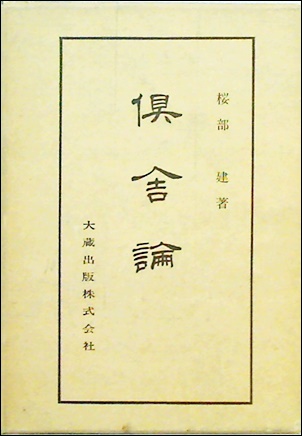 桜部 建 著
倶舎論
大蔵出版株式会社